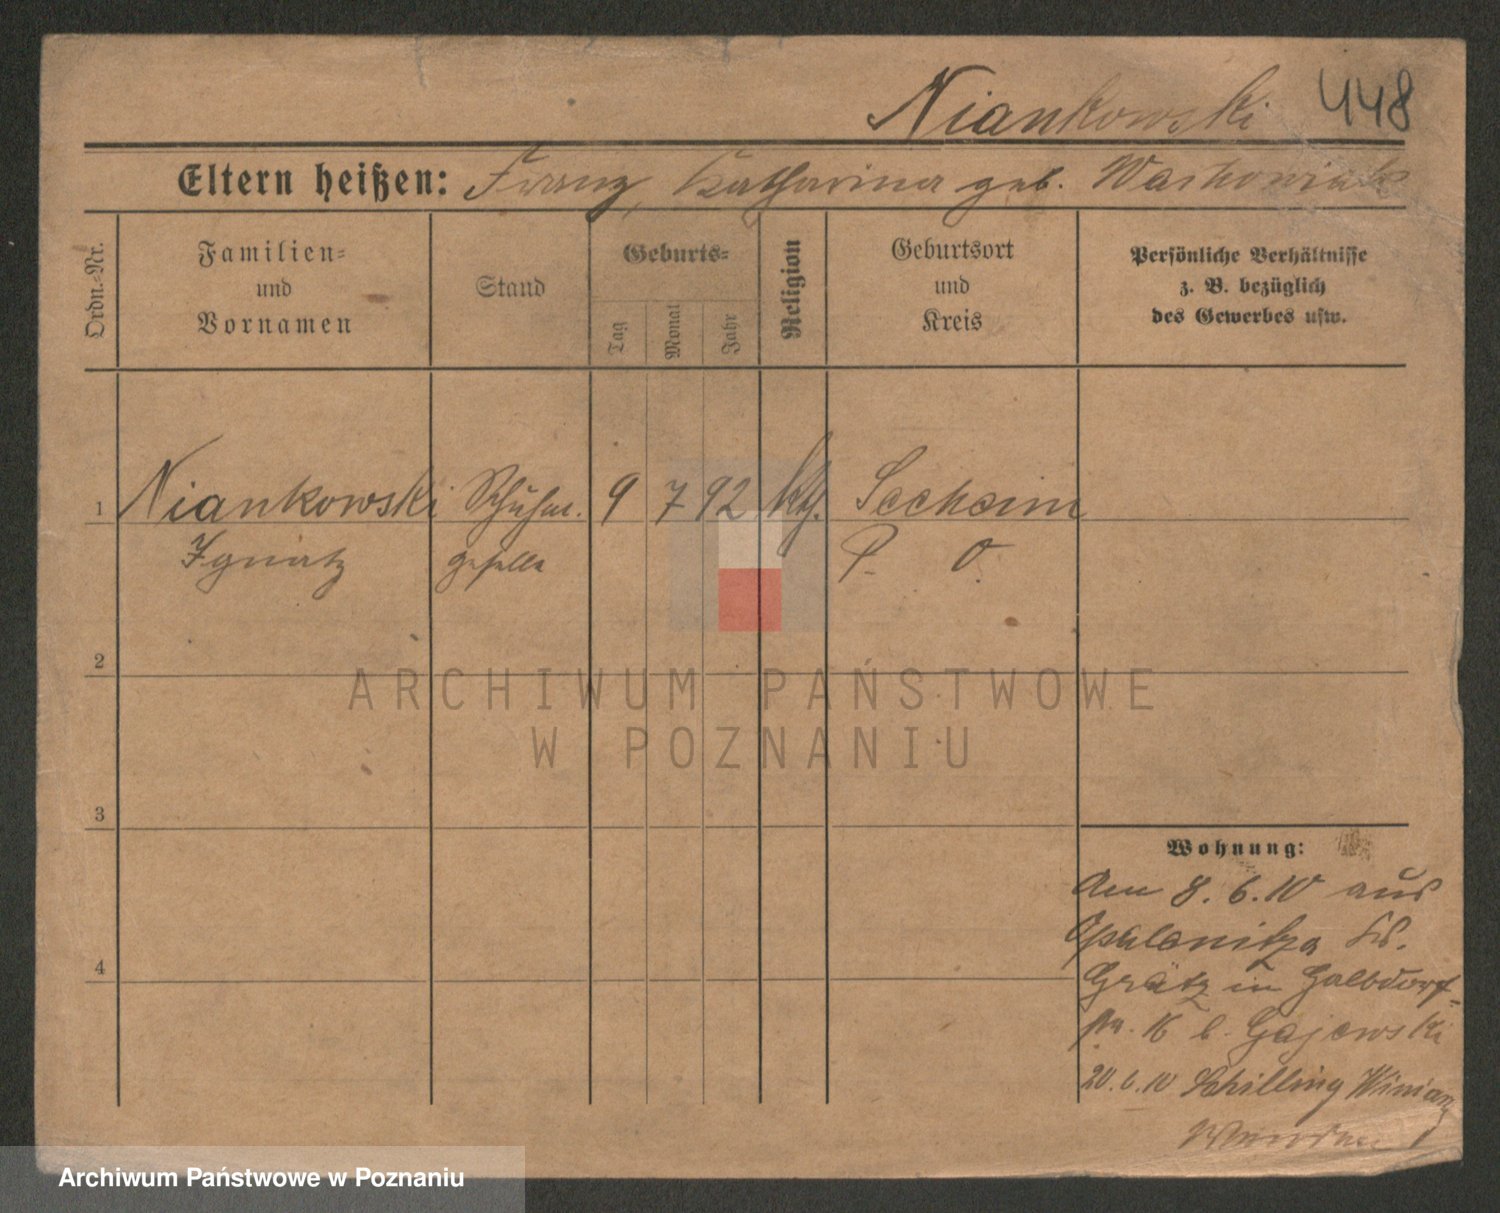 Niankowski 448
Eltern heißen: Franz, Katharina geb.
Ordn.-Nr.
Familien-
und
Vornamen
Stand
Geburts-
Tag
Monat
Jahr
Religion
Geburtsort
und
Kreis
Persönliche Verhältnisse
z. B. bezüglich
des Gewerbes usw.
1 Niankowski Schuhm. 9 7 92 kth. Seeheim
Ignatz geselle P. O.
2
3
4
Wohnung:
Am 8.6.10 aus
Opalenitza Kr.
Grätz in Halbdorf-
str. 16 b. Gajewski
20.6.10 Schilling
ARCHIWUM PAŃSTWOWE
W POZNANIU
Archiwum Państwowe w Poznaniu